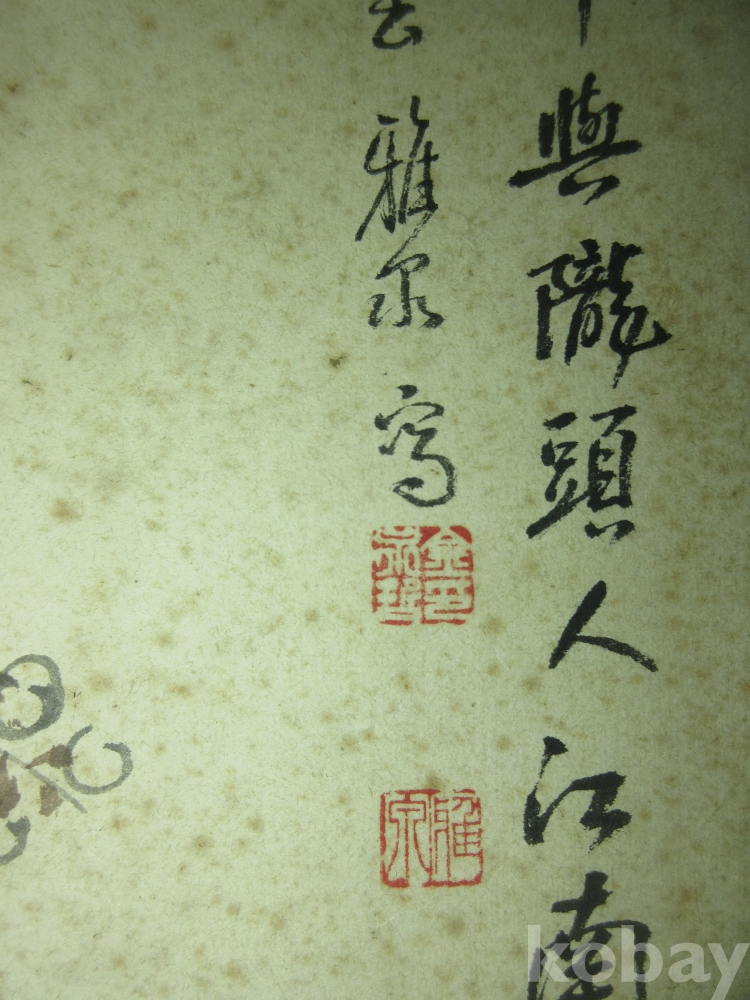 與隴頭人江南
雅泉寫
雅泉
kobay